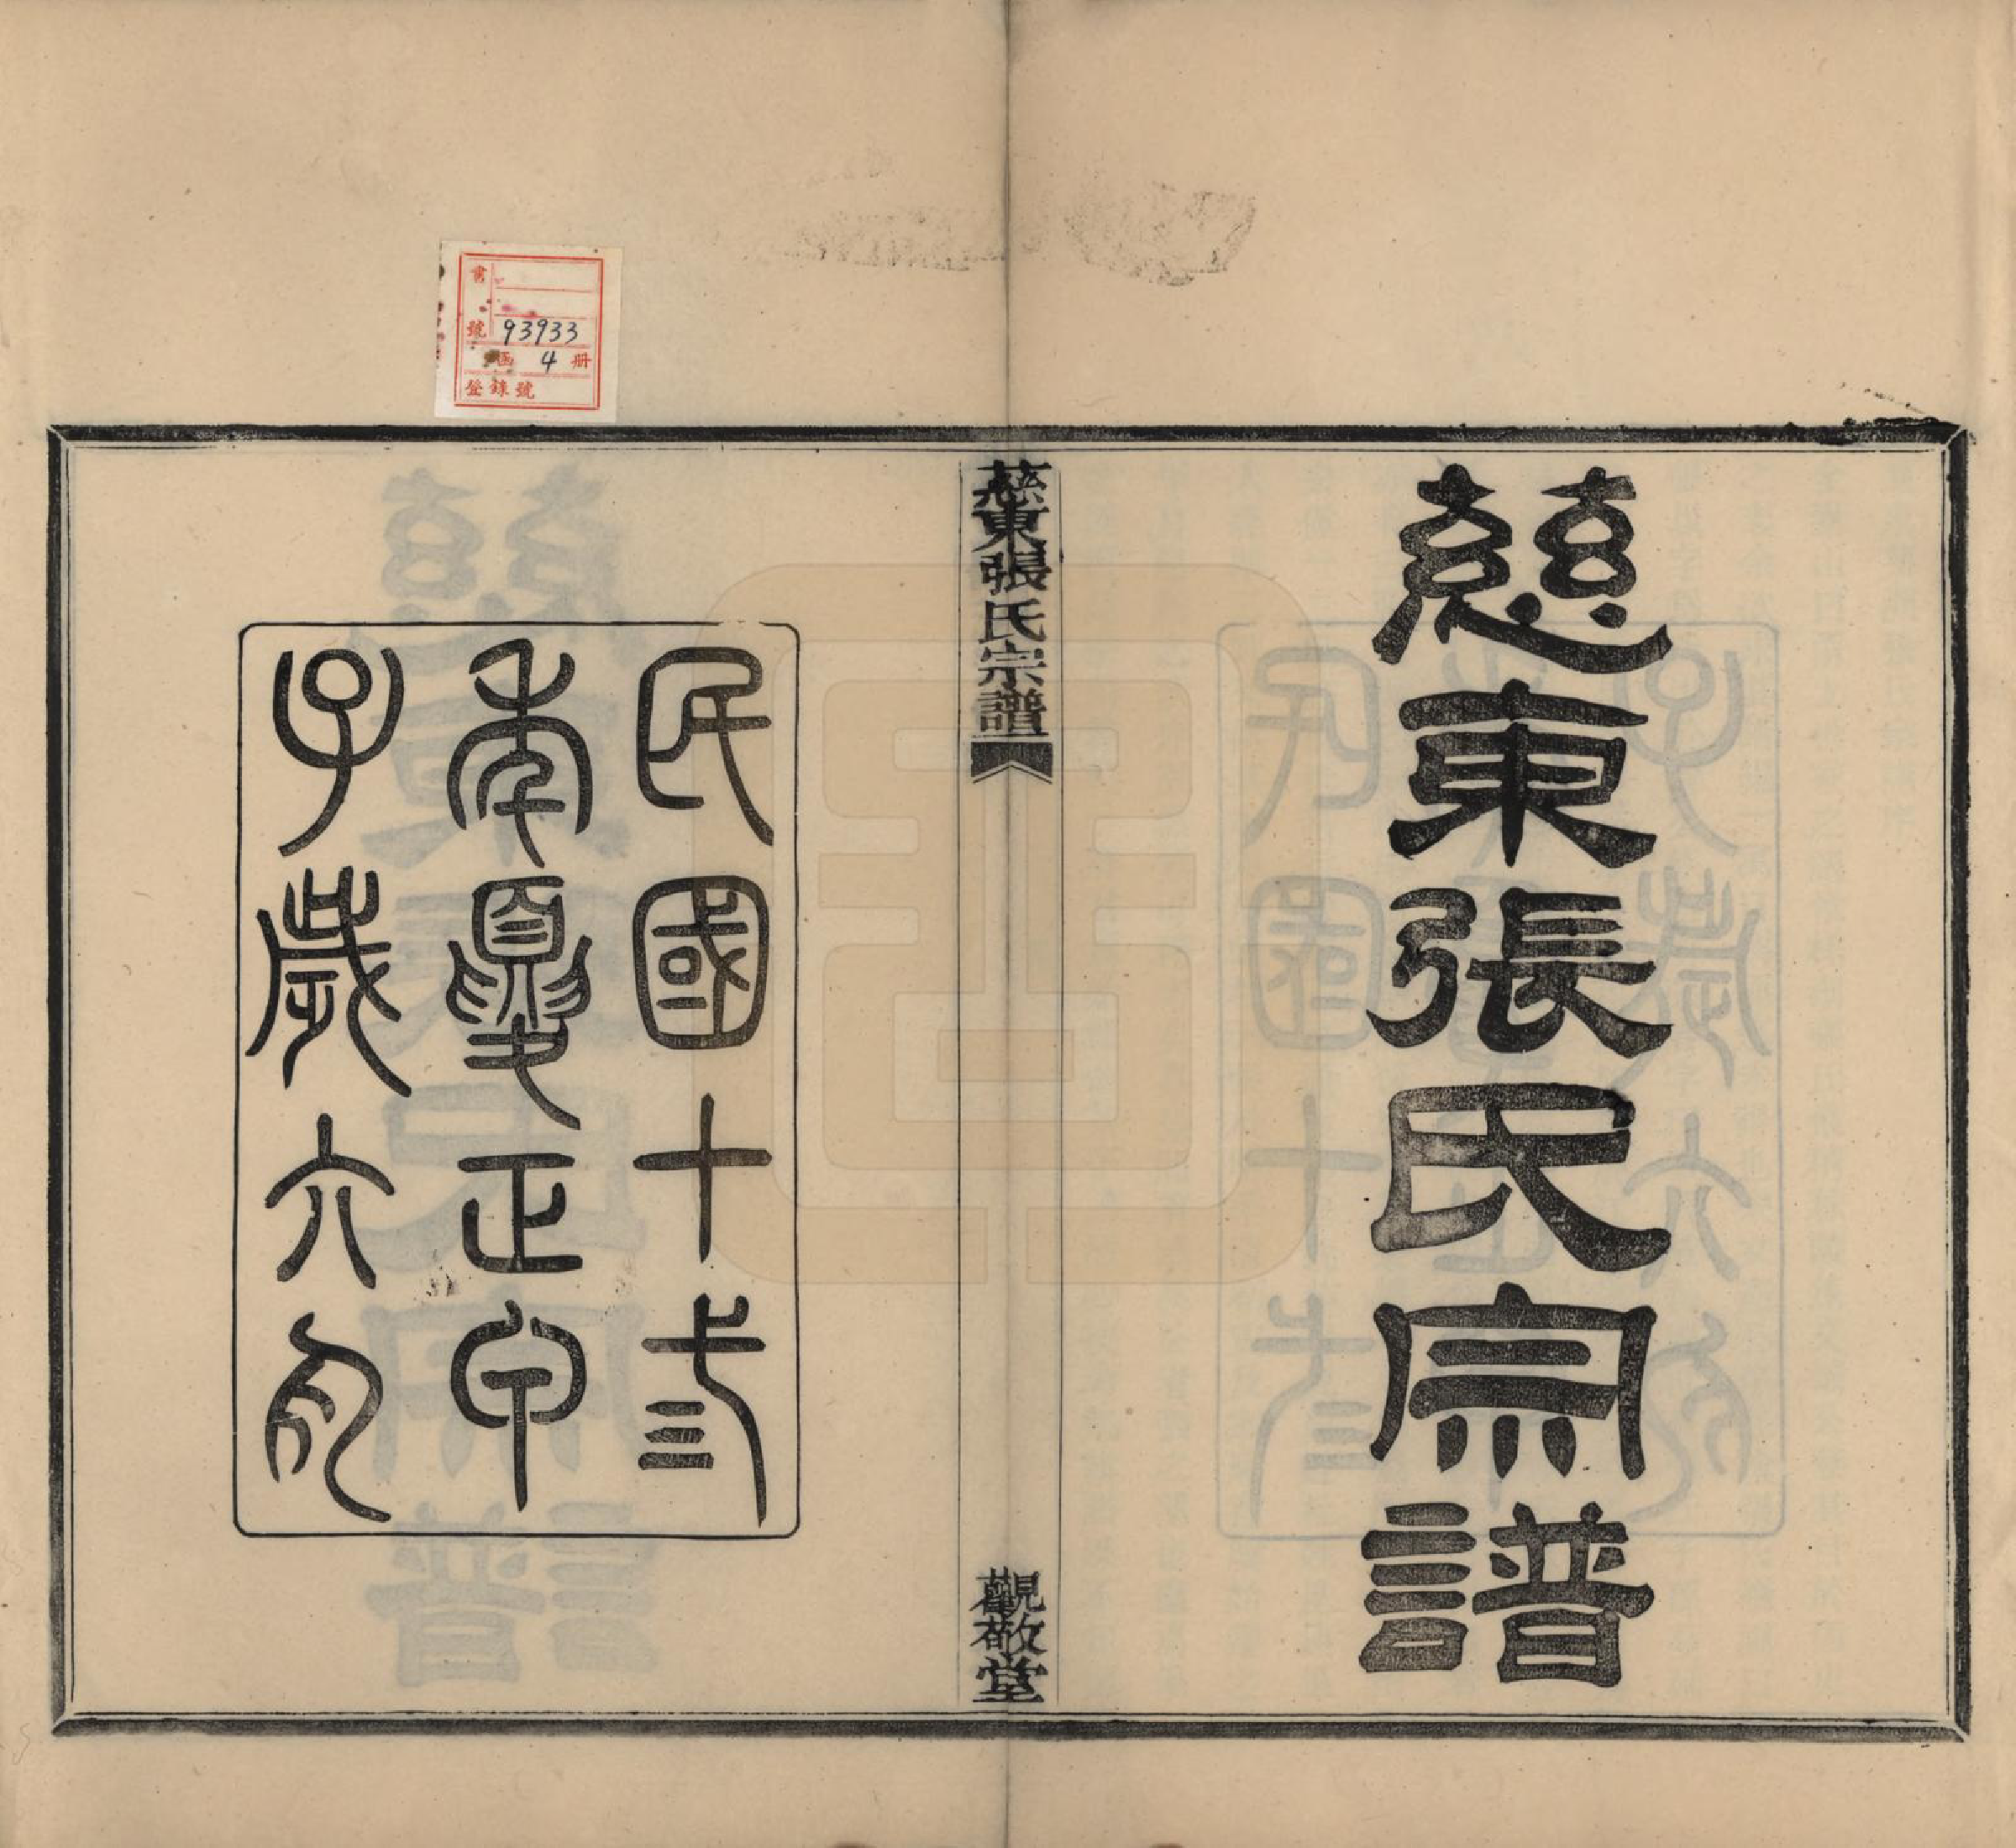 慈東張氏宗譜
慈東張氏宗譜
觀敬堂
民國十弎
年夏正甲
子歲六月
書號 93933
函 4 册
登錄號